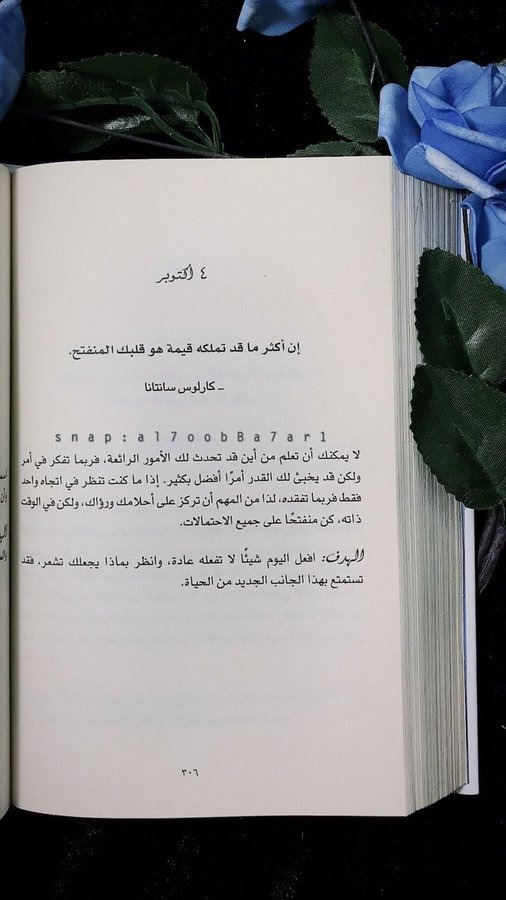 ٤ أكتوبر
إن أكثر ما قد تملكه قيمة هو قلبك المنفتح.
– كارلوس سانتانا
snap:al7oobBa7ar1
لا يمكنك أن تعلم من أين قد تحدث لك الأمور الرائعة، فربما تفكر في أمر
ولكن قد يخبئ لك القدر أمرًا أفضل بكثير. إذا ما كنت تنظر في اتجاه واحد
فقط فربما تفقده، لذا من المهم أن تركز على أحلامك ورؤاك، ولكن في الوقت
ذاته، كن منفتحًا على جميع الاحتمالات.
الهدف: افعل اليوم شيئًا لا تفعله عادة، وانظر بماذا يجعلك تشعر، فقد
تستمتع بهذا الجانب الجديد من الحياة.
٣٠٦